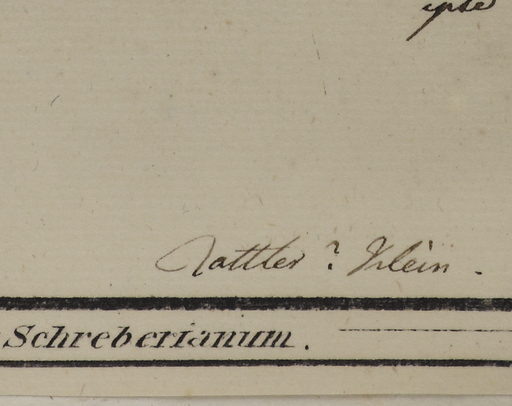 ipse
Rottler? Klein.
Schreberianum.